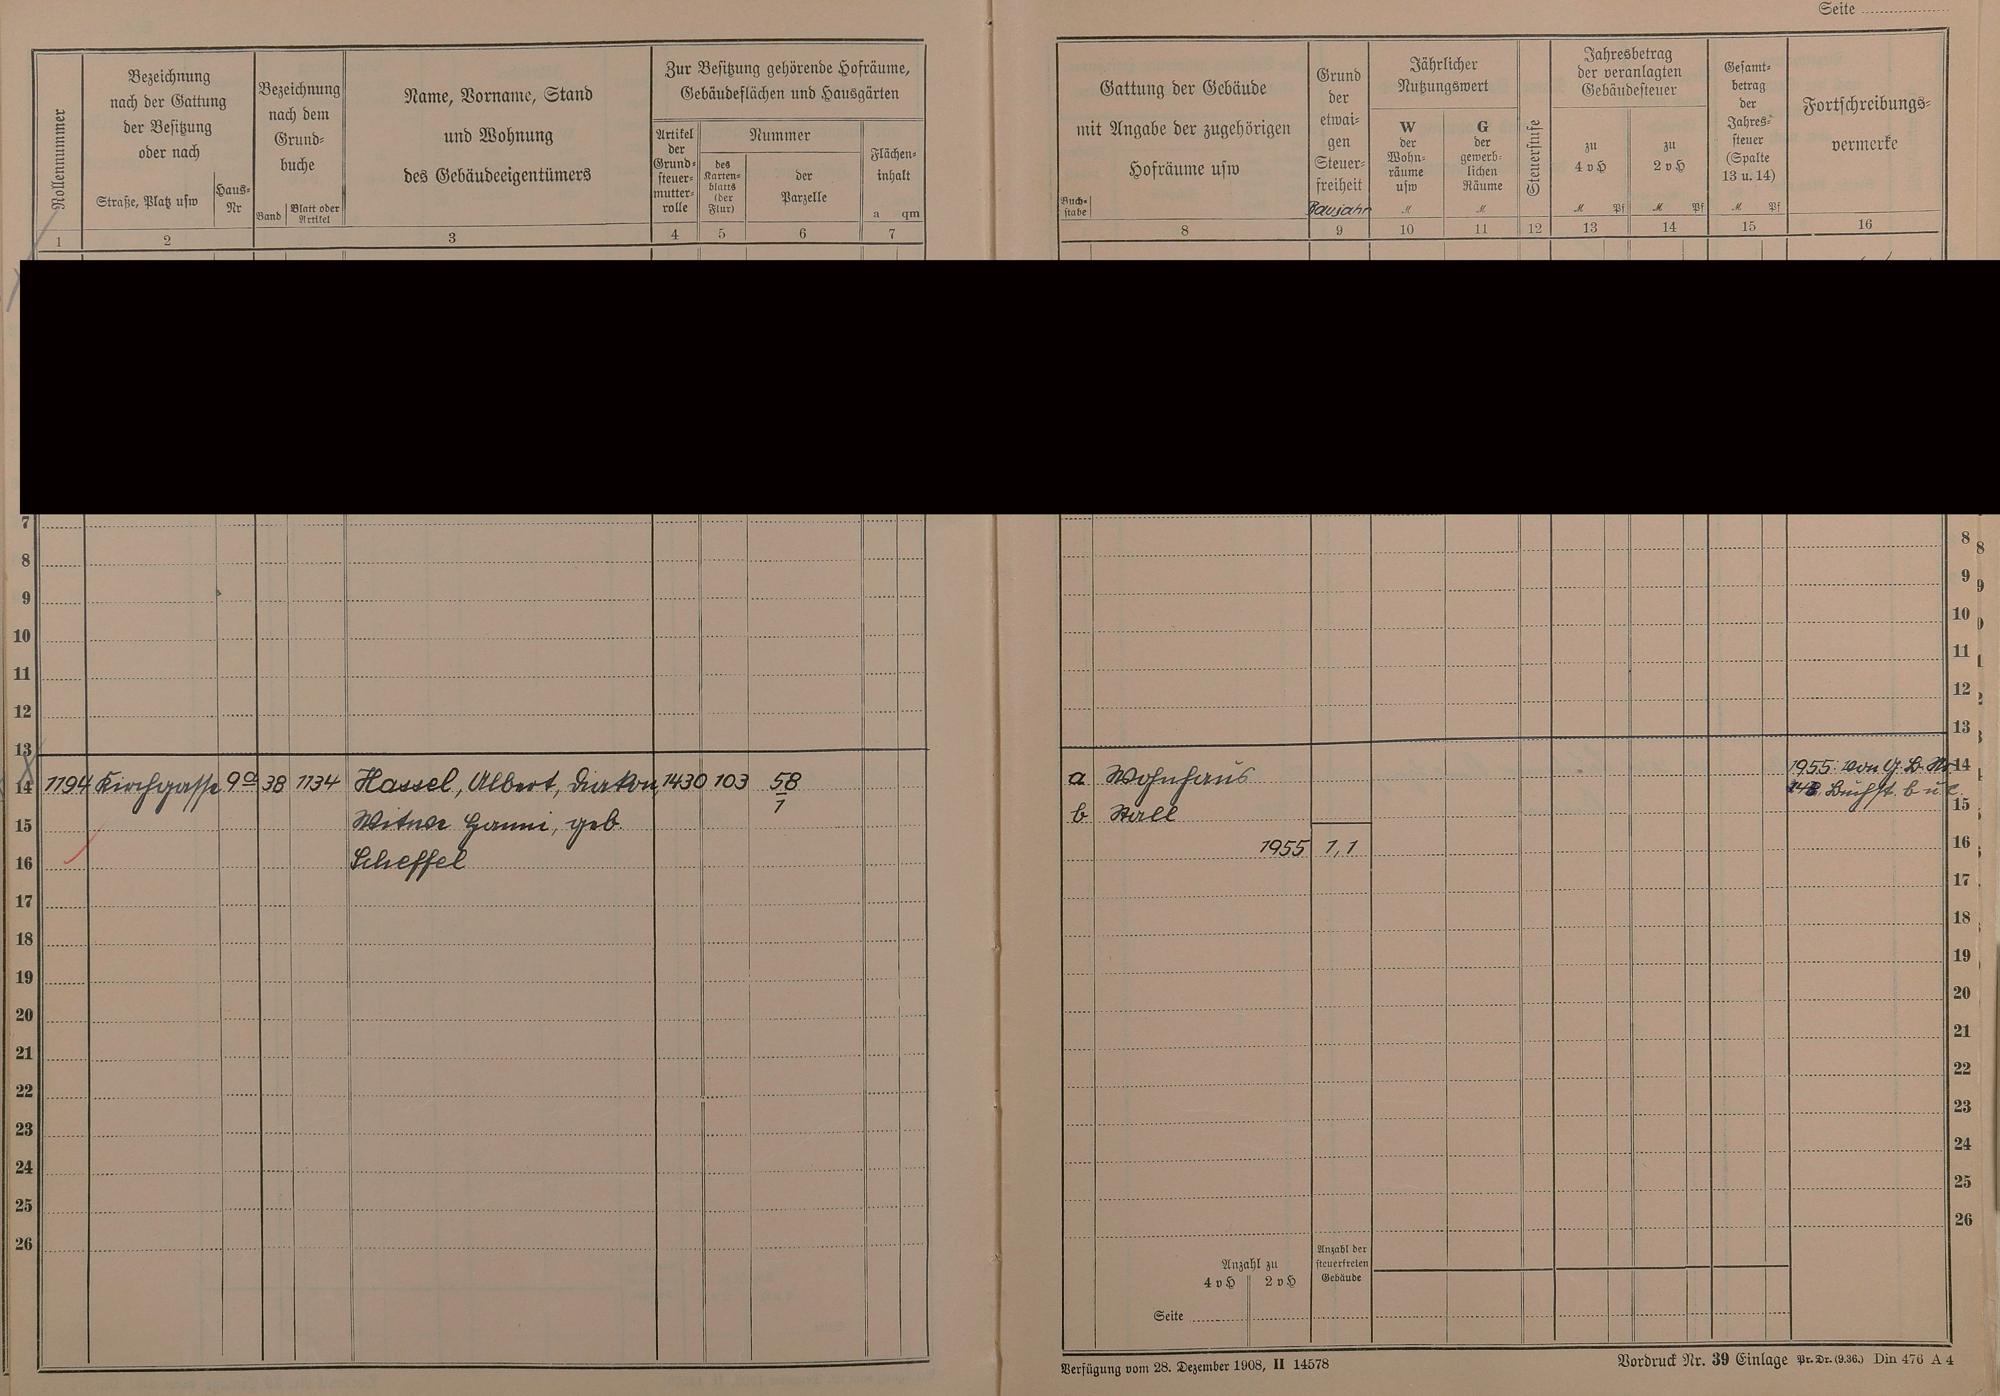 Seite
Rollennummer
Bezeichnung
nach der Gattung
der Besitzung
oder nach
Straße, Platz usw
Haus-
Nr
Bezeichnung
nach dem
Grund-
buche
Band
Blatt oder
Artikel
Name, Vorname, Stand
und Wohnung
des Gebäudeeigentümers
Zur Besitzung gehörende Hofräume,
Gebäudeflächen und Hausgärten
Artikel
der
Grund-
steuer-
mutter-
rolle
Nummer
des
Karten-
blatts
(der
Flur)
der
Parzelle
Flächen-
inhalt
a qm
1 2 3 4 5 6 7
Gattung der Gebäude
mit Angabe der zugehörigen
Hofräume usw
Buch-
stabe
Grund
der
etwai-
gen
Steuer-
freiheit
Baujahr
Jährlicher
Nutzungswert
W
der
Wohn-
räume
usw
M
G
der
gewerb-
lichen
Räume
M
Steuerstufe
Jahresbetrag
der veranlagten
Gebäudesteuer
zu
4 v H
M Pf
zu
2 v H
M Pf
Gesamt-
betrag
der
Jahres-
steuer
(Spalte
13 u. 14)
M Pf
Fortschreibungs-
vermerke
8 9 10 11 12 13 14 15 16
7
8
9
10
11
12
13
14 1194 Kirchgasse 9a 38 1134 Hassel, Albert, Diakon, 1430 103 58
1
15 Witwe Hanni, geb.
16 Scheffel
17
18
19
20
21
22
23
24
25
26
8 8
9 9
10
11
12
13
a Wohnhaus 1955: von G.B. Nr 14
b Stall 148, Buchst. b u c. 15
1955 1,1 16
17
18
19
20
21
22
23
24
25
26
Anzahl zu
4 v H 2 v H
Anzahl der
steuerfreien
Gebäude
Seite
Verfügung vom 28. Dezember 1908, II 14578
Vordruck Nr. 39 Einlage Pr. Dr. (9.36.) Din 476 A 4